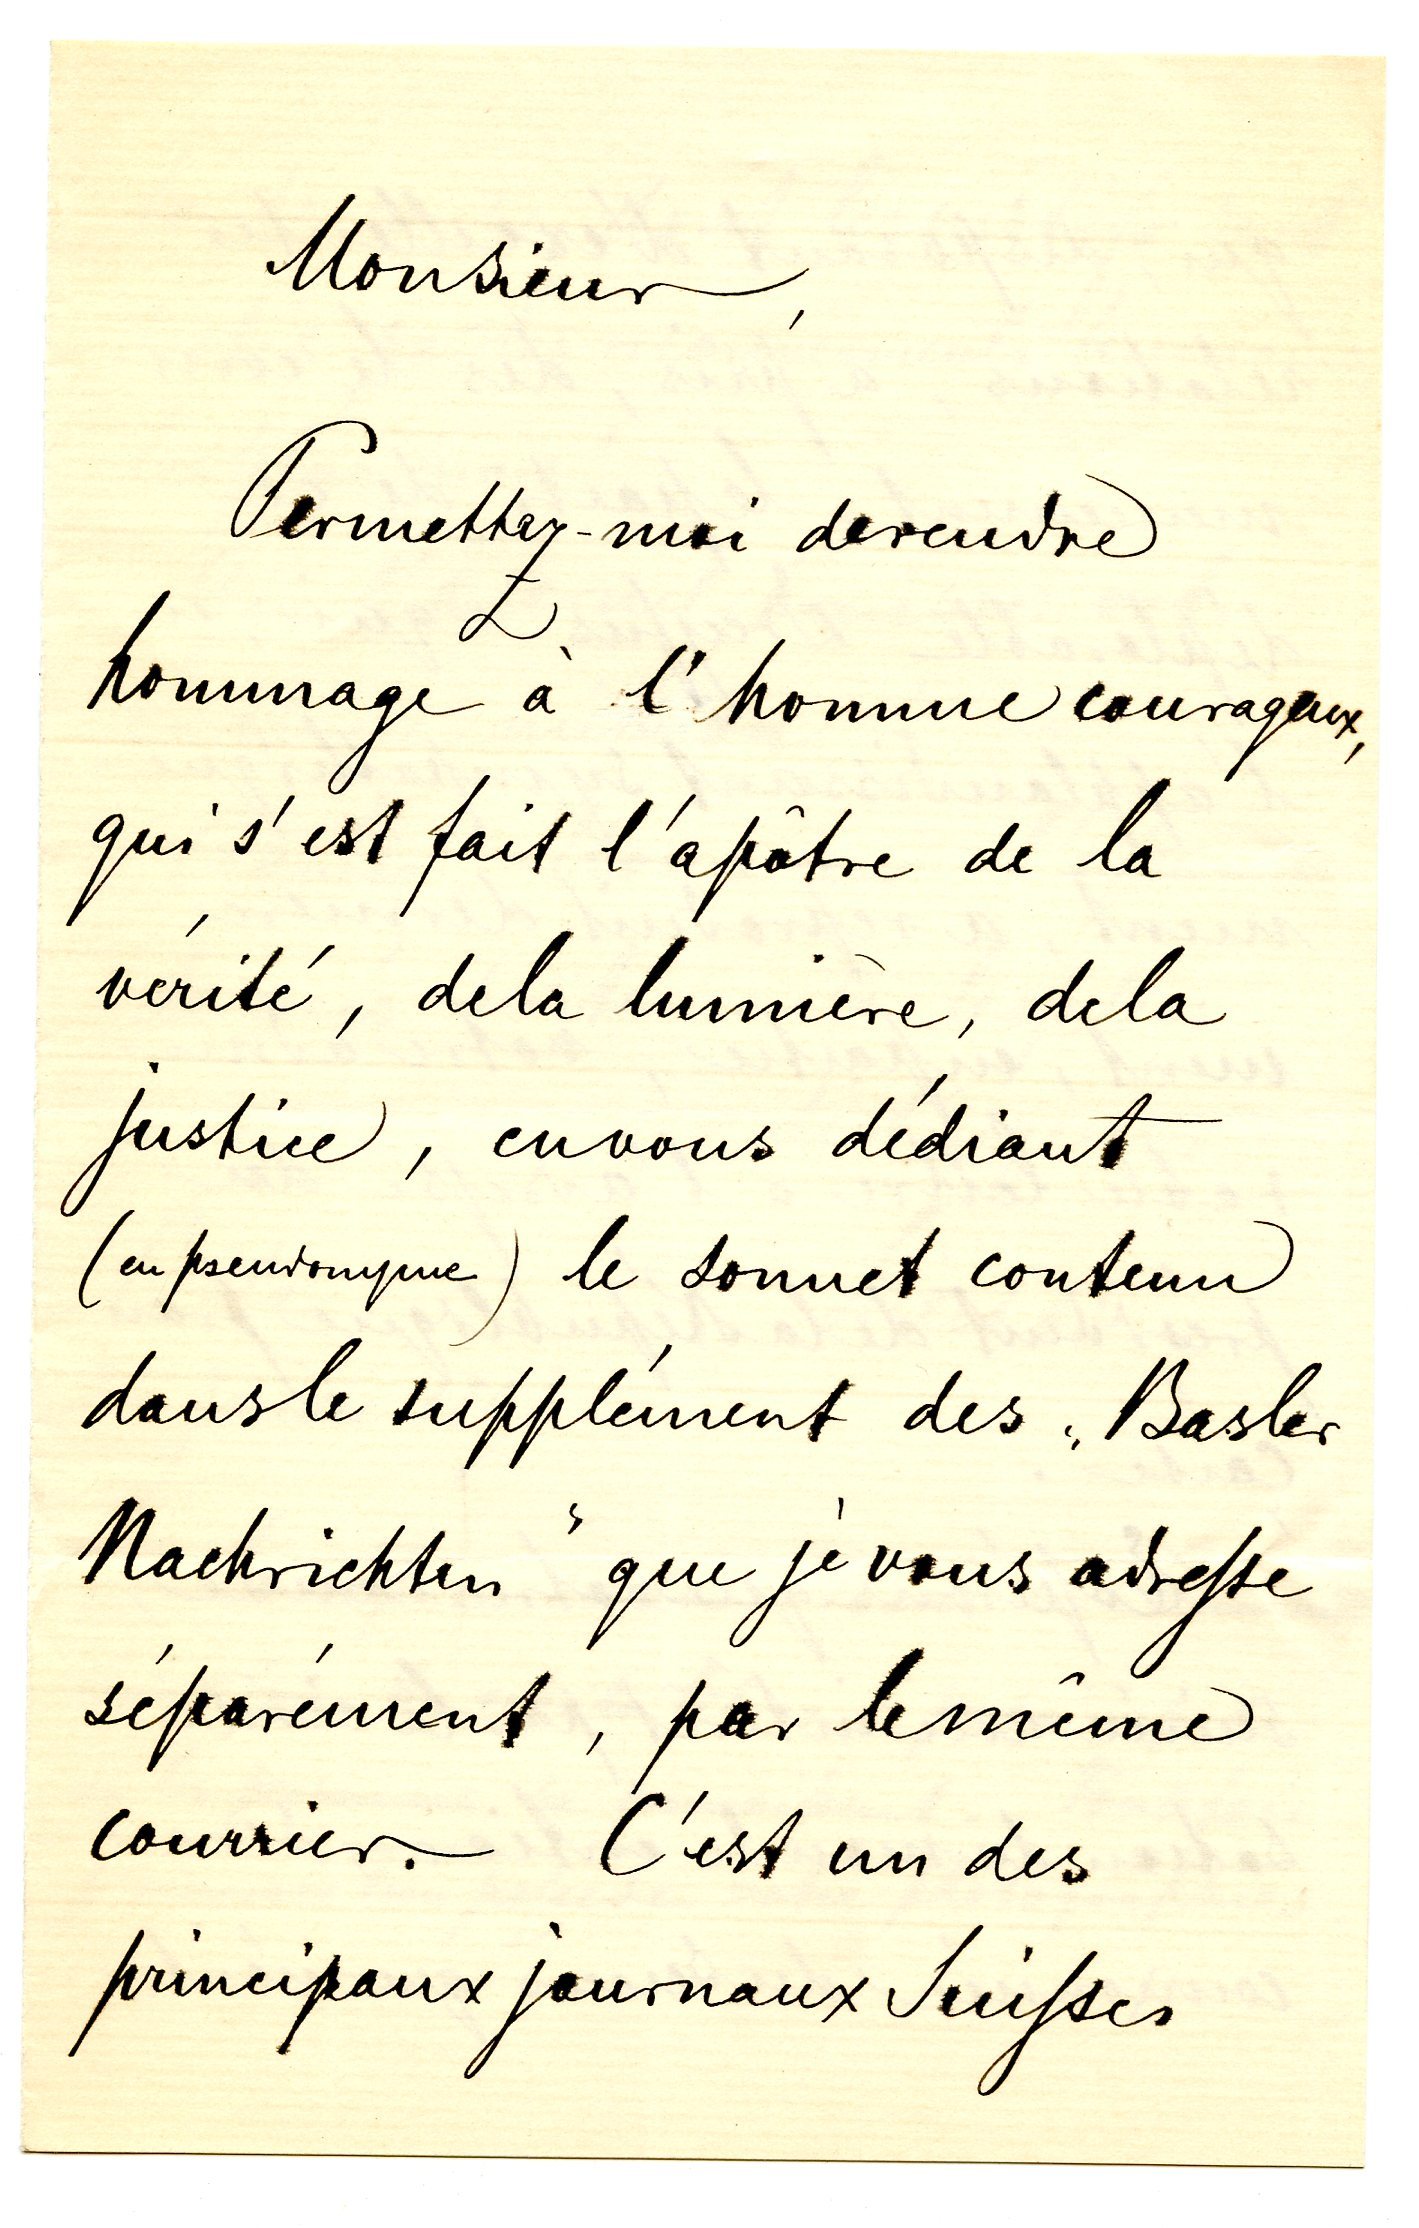 Monsieur,
Permettez-moi de rendre
hommage à l'homme courageux,
qui s'est fait l'apôtre de la
vérité, de la lumière, de la
justice, en vous dédiant
(en pseudonyme) le sonnet contenu
dans le supplément des „Basler
Nachrichten" que je vous adresse
séparément, par le même
courrier. — C'est un des
principaux journaux Suisses